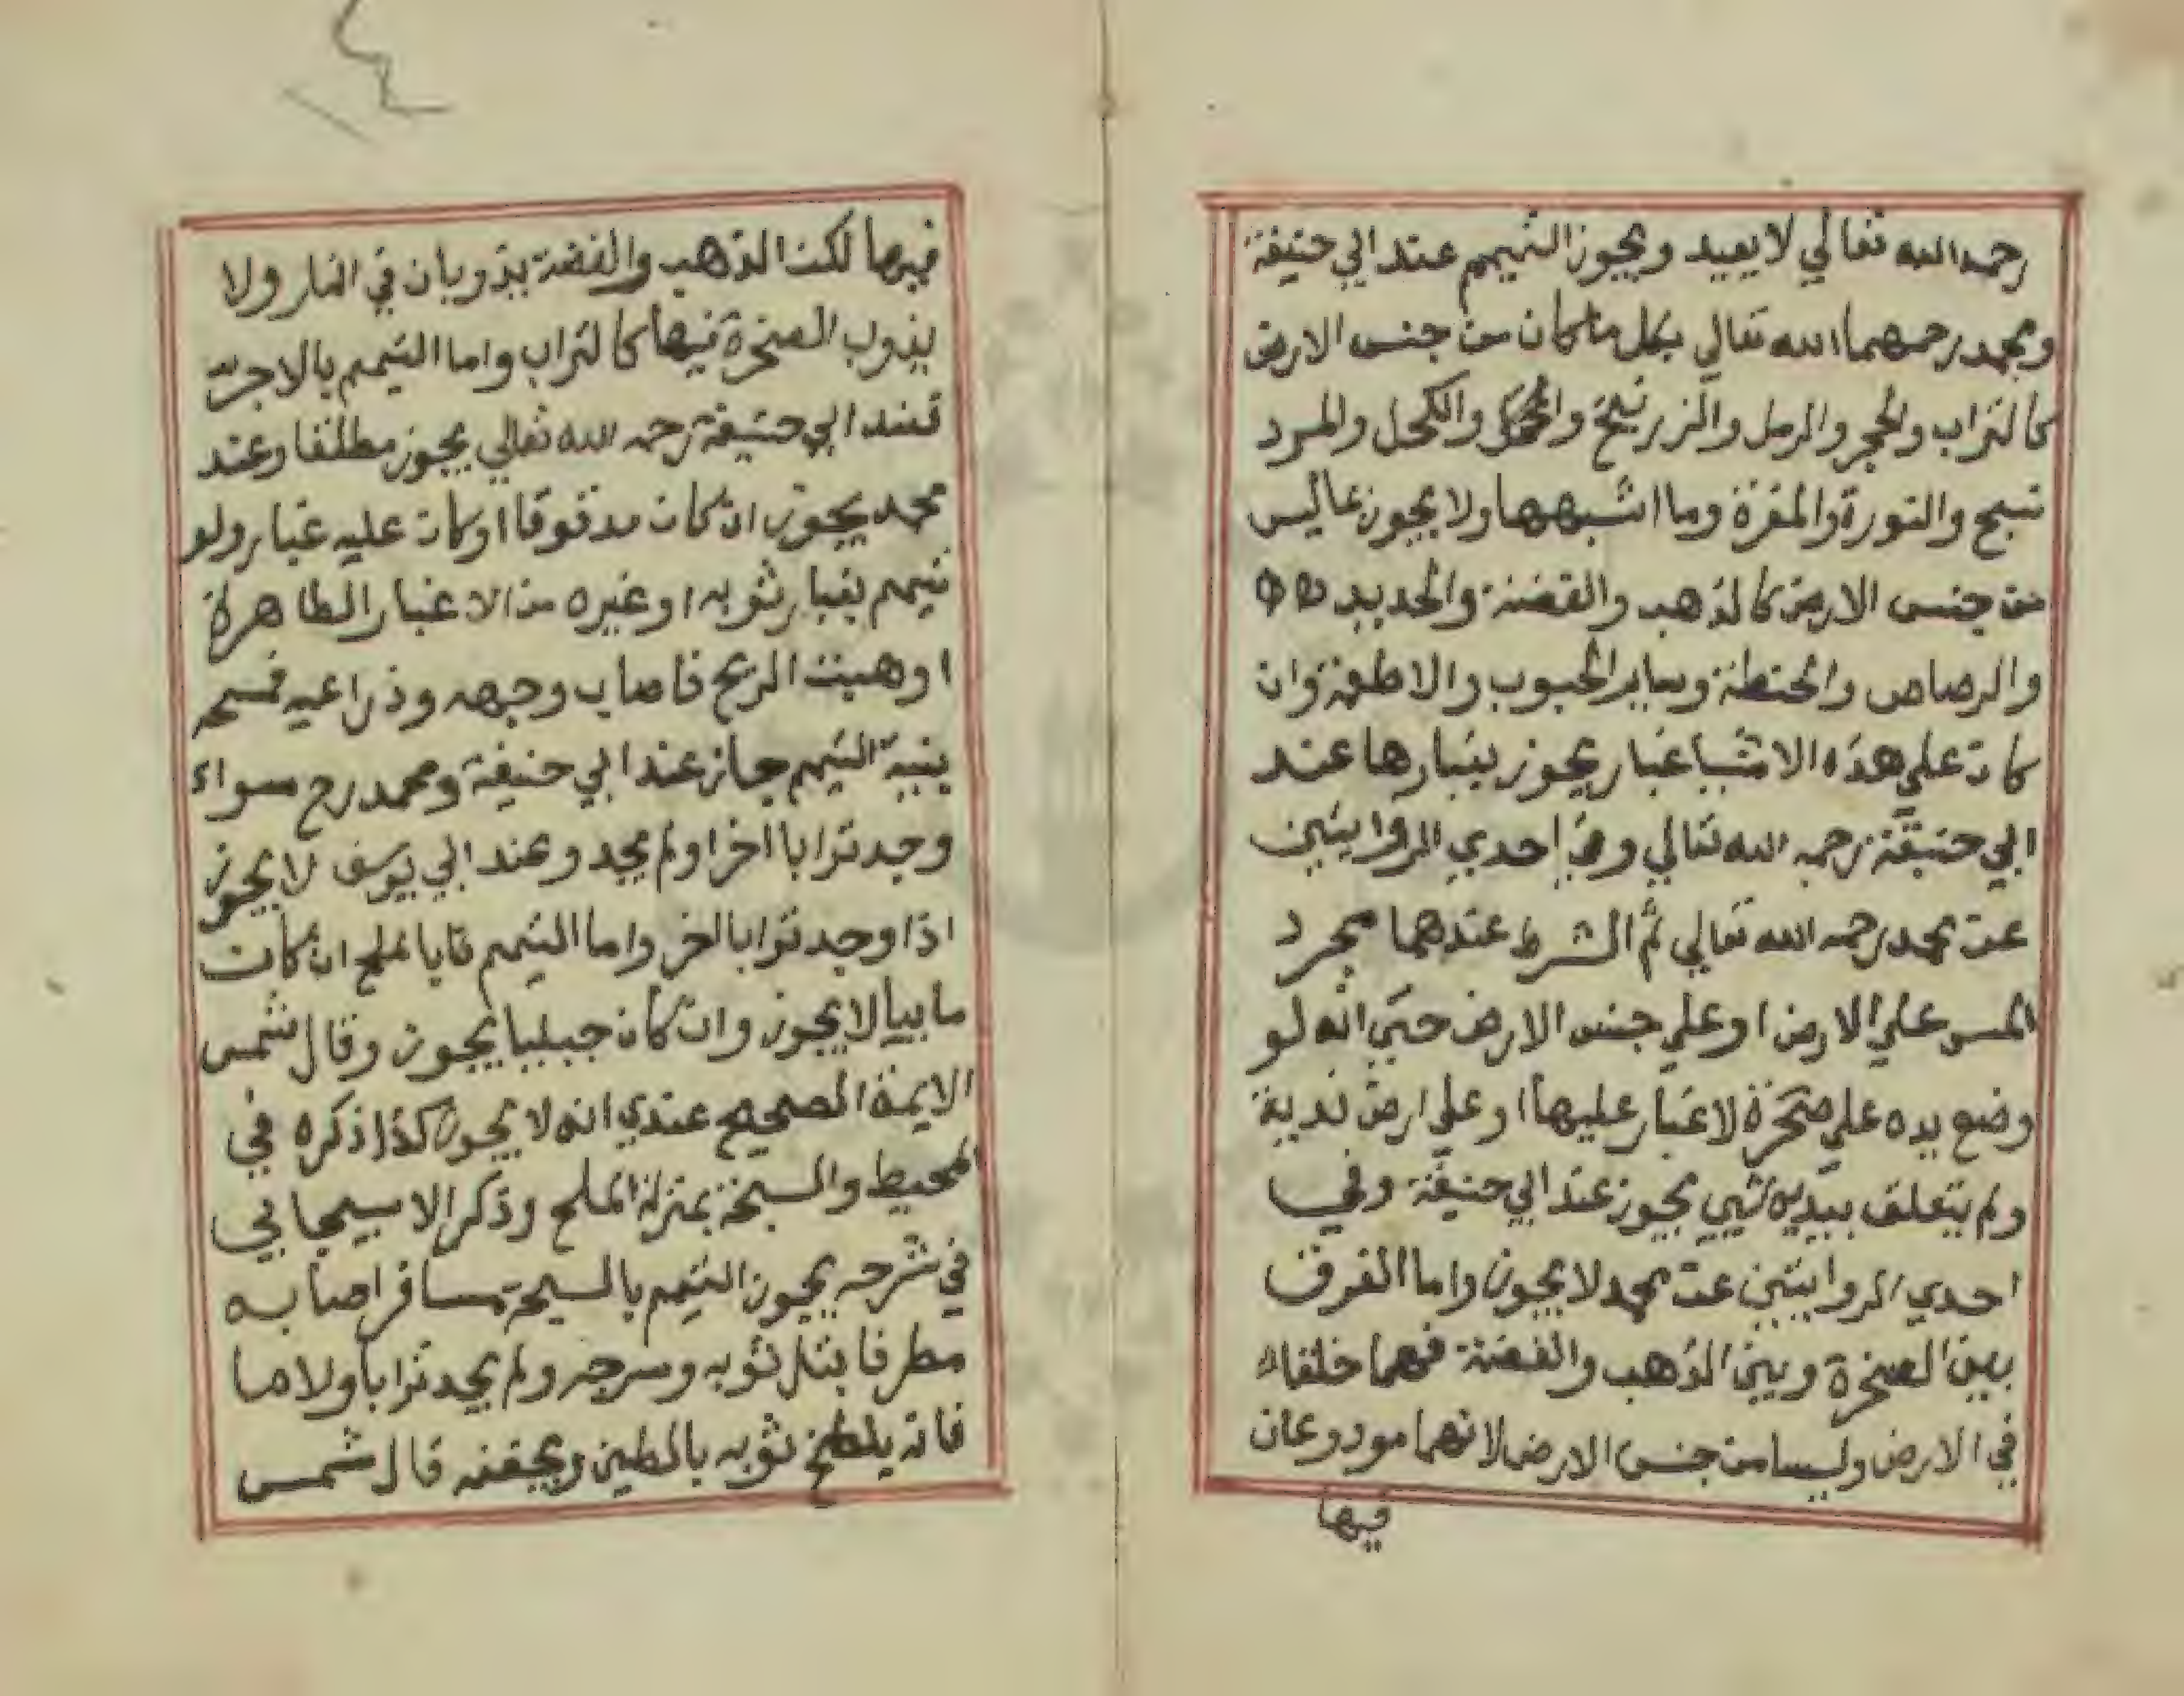 رحمه الله تعالي لا يعيد ويجوز التيمم عند ابي حنيفة
ومحمد رحمهما الله تعالي بكل ما كان من جنس الارض
كالتراب والحجر والرمل والزرنيخ والكحل والمرد
سبح والنورة والمغرة وما اشبهها ولا يجوز بما ليس
من جنس الارض كالذهب والفضة والحديد
والرصاص والحنطة وساير الحبوب والاطعمة وان
كان علي هذه الاشيا غبار يجوز بغبارها عند
ابي حنيفة رحمه الله تعالي وفي احدي الروايتين
عن محمد رحمه الله تعالي ثم الشرط عندهما مجرد
المس علي الارض او علي جنس الارض حتي انه لو
وضع يده علي صخرة لا غبار عليها او علي ارض ندية
ولم يتعلق بيديه شيي يجوز عند ابي حنيفة وفي
احدي الروايتين عن محمد لا يجوز واما الفرق
بين الصخرة وبين الذهب والفضة فهما خلقا
في الارض وليسا من جنس الارض لانهما مودوعان
فيها
فيها لكن الذهب والفضة يذوبان في النار ولا
يذوب الصخرة فيها كالتراب واما التيمم بالاجر
فعند ابي حنيفة رحمه الله تعالي يجوز مطلقا وعند
محمد يجوز ان كان مدقوقا او كان عليه غبار ولو
تيمم بغبار ثوبه او غيره من الاغبار الطاهرة
او هبت الريح فاصاب وجهه وذراعيه فمسحه
بنية التيمم جاز عند ابي حنيفة ومحمد رح سواء
وجد ترابا اخر او لم يجد وعند ابي يوسف لا يجوز
اذا وجد ترابا اخر واما التيمم بالملح ان كان
ماييا لا يجوز وان كان جبليا يجوز وقال شمس
الايمة الصحيح عندي انه لا يجوز كذا ذكره في
المحيط والسبخة بمنزلة الملح وذكر الاسبيجابي
في شرحه يجوز التيمم بالسبخة مسافر اصابه
مطر فابتل ثوبه وسرجه ولم يجد ترابا ولا ما
فانه يلطخ ثوبه بالطين ويجففه قال شمس